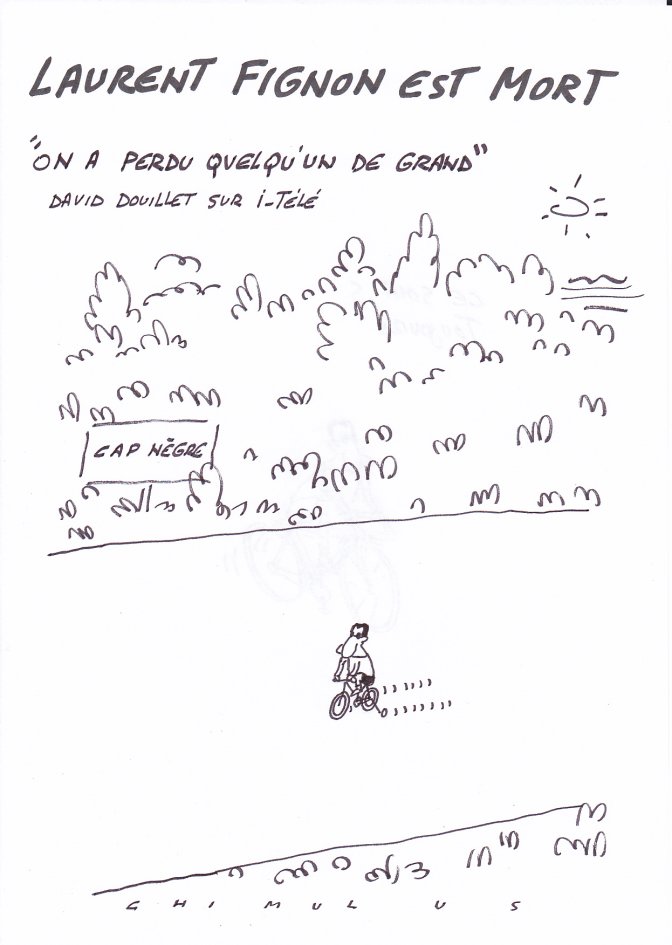 LAURENT FIGNON EST MORT
"ON A PERDU QUELQU'UN DE GRAND"
DAVID DOUILLET SUR I-TÉLÉ
CAP NÈGRE
GHIMULUS